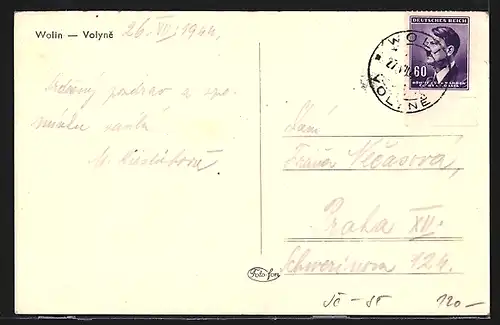 Wolin — Volyně
26. VII. 1944.
Srdečný pozdrav a
zasílá
M.
DEUTSCHES REICH
60
BÖHMEN UND MÄHREN
ČECHY A MORAVA
WOLIN
27.
VOLYNĚ
Paní
Fráňa Nečasová,
Praha XII.
Schwerinova 124.
Foto-fon
120-